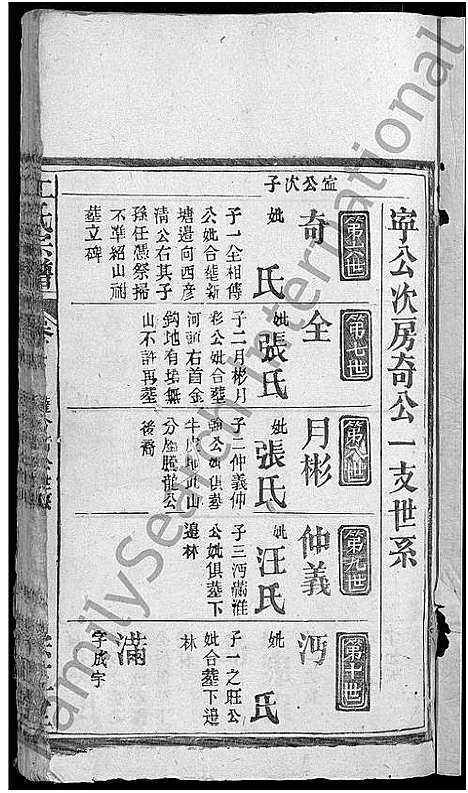 寧公次房奇公一支世系
第六世
奇
寍公次子
妣
氏
子一全相傳
公妣合塟新
塘邉向西彦
清公右其子
孫任憑祭掃
不準紹山祔
塟立碑
第七世
全
妣張氏
子二月彬月
彩公妣合塟
河頭右首金
鈎地有墳無
山不許再塟
第八世
月彬
妣張氏
子二仲義仲
翰公妣俱塟
牛皮地此山
分塟騰龍公
後裔
第九世
仲義
妣汪氏
子三沔滿淮
公妣俱塟下
邉林
第十世
沔
妣
氏
子一之旺公
妣合塟下邉
林
滿
字成宇
氏宗譜
FamilySearch International